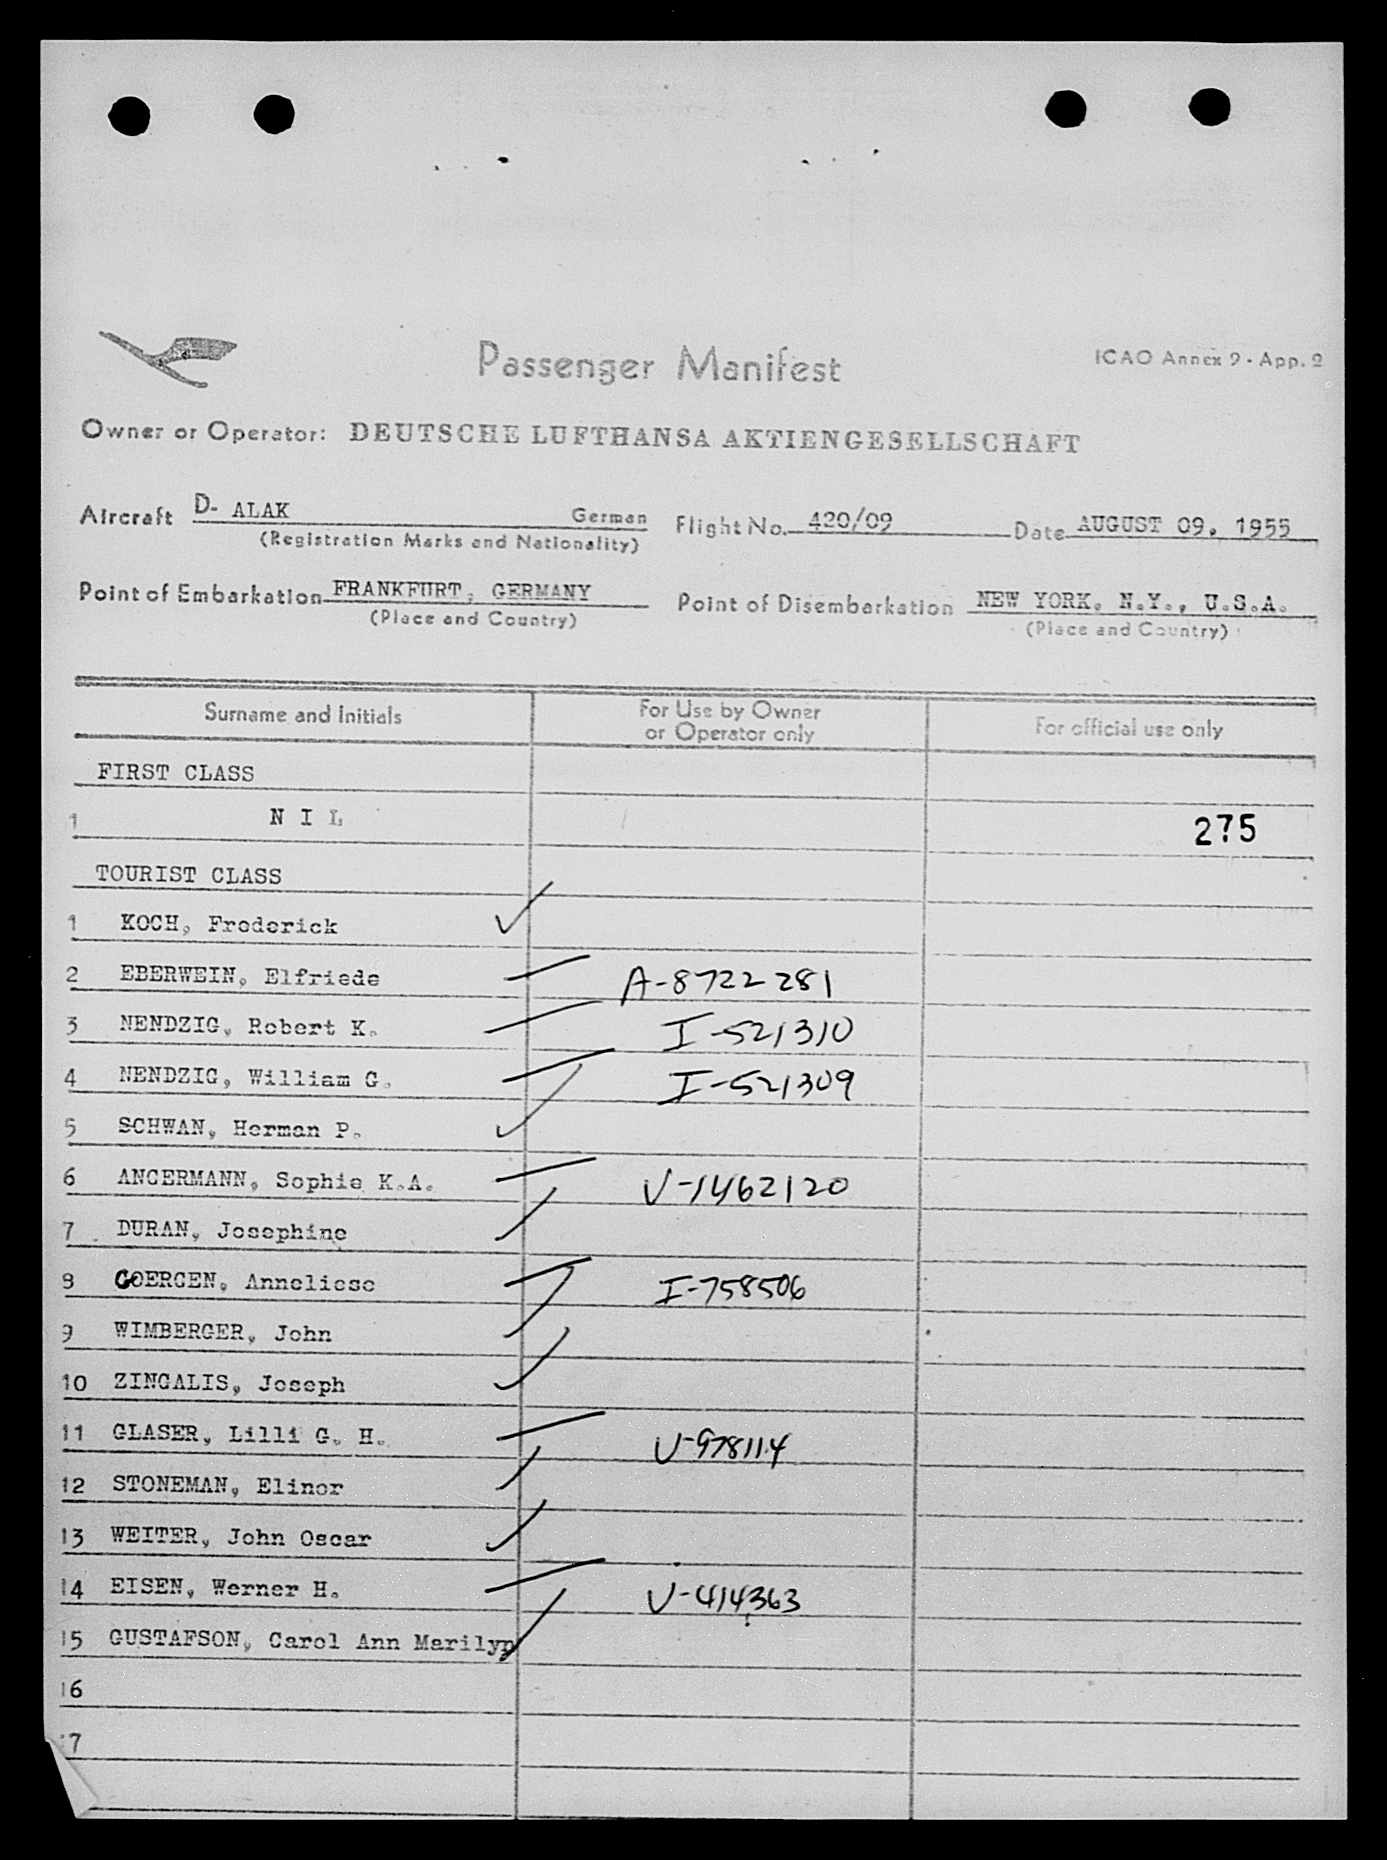 Passenger Manifest
ICAO Annex 9 - App. 2
Owner or Operator: DEUTSCHE LUFTHANSA AKTIENGESELLSCHAFT
Aircraft D- ALAK German Flight No. 420/09 Date AUGUST 09, 1955
(Registration Marks and Nationality)
Point of Embarkation FRANKFURT, GERMANY Point of Disembarkation NEW YORK, N.Y., U.S.A.
(Place and Country) (Place and Country)
Surname and Initials For Use by Owner or Operator only For official use only
FIRST CLASS
1 N I L 275
TOURIST CLASS
1 KOCH, Frederick ✓
2 EBERWEIN, Elfriede A-8722281
3 NENDZIG, Robert K. I-521310
4 NENDZIG, William G. I-521309
5 SCHWAN, Herman P. ✓
6 ANGERMANN, Sophie K.A. V-1462120
7 DURAN, Josephine
8 GOERGEN, Anneliese I-758506
9 WIMBERGER, John
10 ZINGALIS, Joseph ✓
11 GLASER, Lilli G. H. V-978114
12 STONEMAN, Elinor
13 WEITER, John Oscar ✓
14 EISEN, Werner H. V-414363
15 GUSTAFSON, Carol Ann Marilyn
16
17